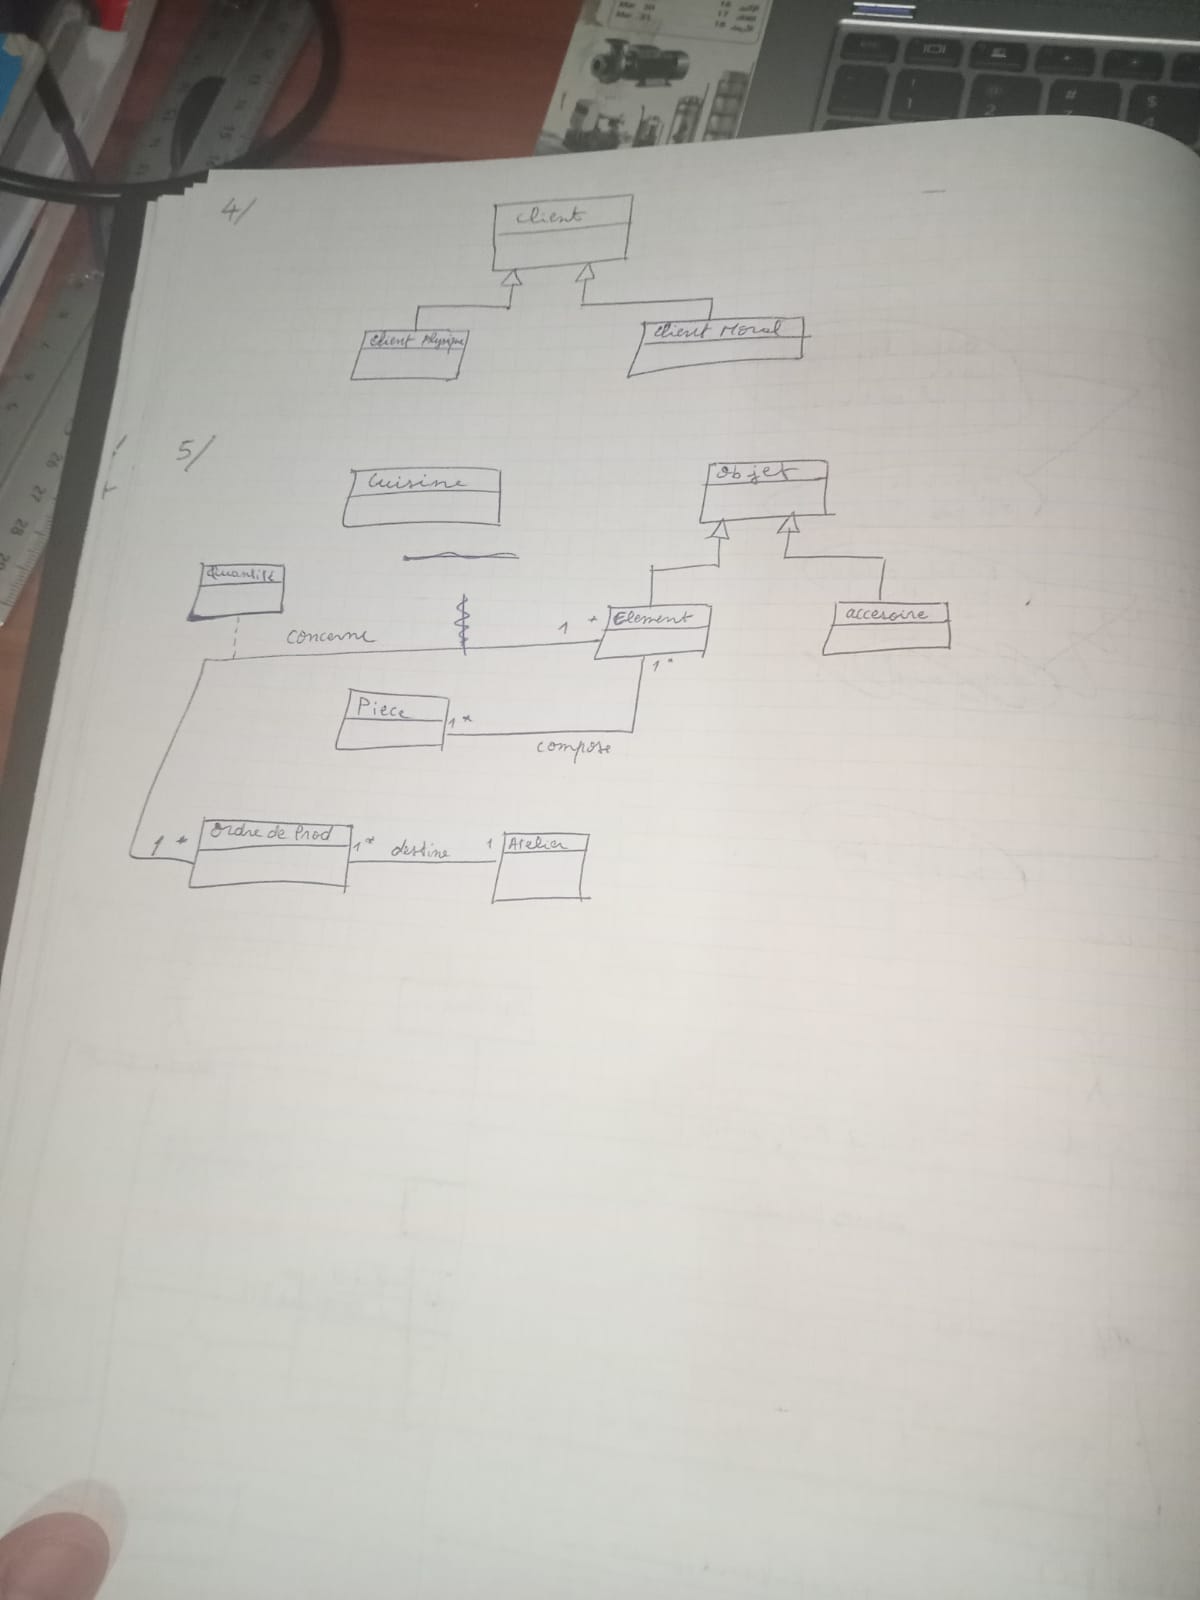 Mar. 30
Mar. 31
16
17
18
! 1
@ 2
#
$ 4
4/
Client
Client Physique
Client Moral
5/
Cuisine
Objet
Quantité
concerne
1 *
Element
accesoire
1*
Piece
1*
compose
1 *
Ordre de Prod
1*
destine
1
Atelier